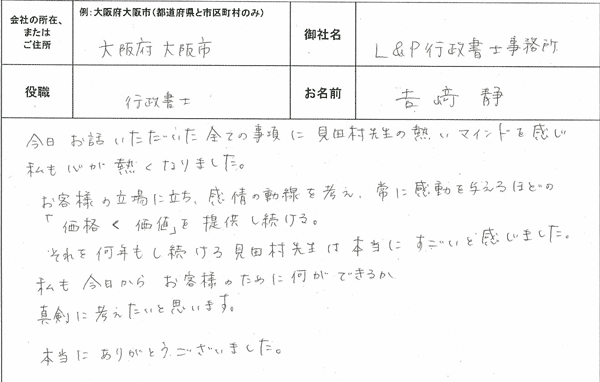 会社の所在、
または
ご住所
例：大阪府大阪市（都道府県と市区町村のみ）
大阪府 大阪市
御社名
L&P行政書士事務所
役職
行政書士
お名前
吉﨑 静
今日 お話いただいた 全ての事項に 見田村先生の熱いマインドを感じ
私も心が熱くなりました。
お客様の立場に立ち、感情の動線を考え、常に感動を与えるほどの
「価格 < 価値」を提供し続ける。
それを何年もし続ける見田村先生は本当にすごいと感じました。
私も今日から お客様のために何ができるか
真剣に考えたいと思います。
本当にありがとうございました。